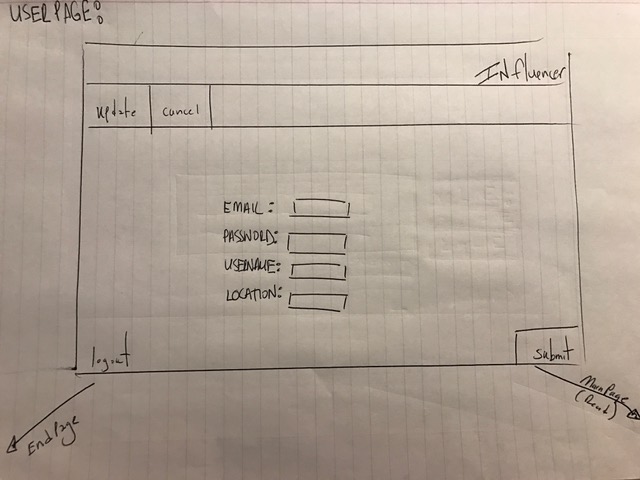 USER PAGE:
INfluencer
update cancel
EMAIL:
PASSWORD:
USERNAME:
LOCATION:
logout submit
End Page
Main Page